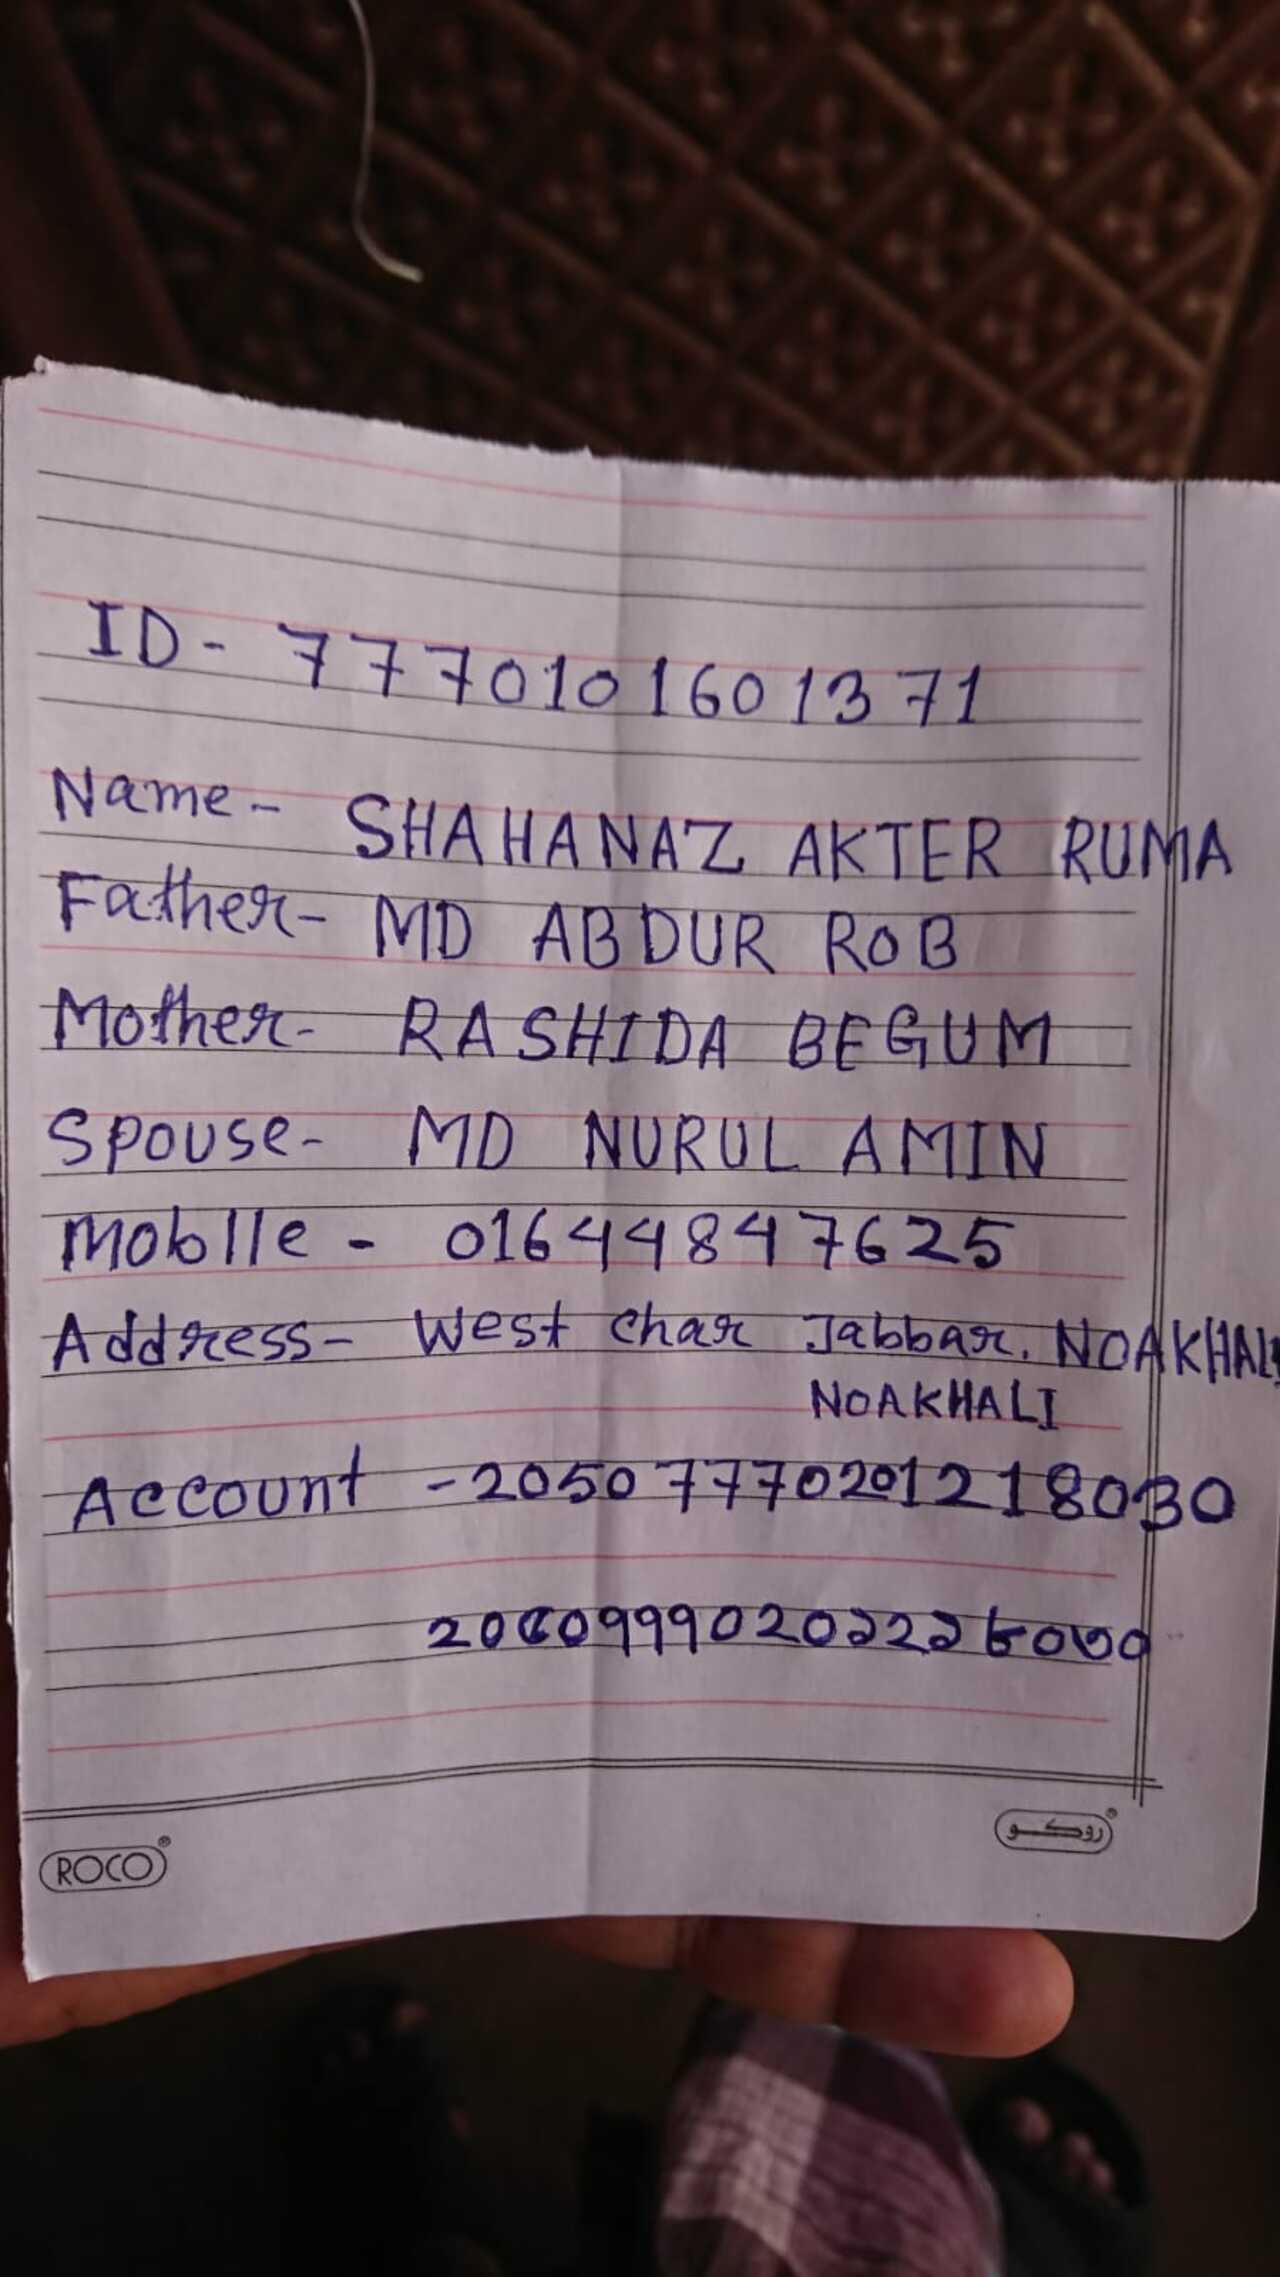 ID - 7770101601371
Name - SHAHANAZ AKTER RUMA
Father - MD ABDUR ROB
Mother - RASHIDA BEGUM
Spouse - MD NURUL AMIN
Moblle - 01644847625
Address - West char Jabbar, NOAKHALI
NOAKHALI
Account - 20507770201218030
২০৫০৭৭৭০২০১২১৮০৩০
ROCO®
روكو®